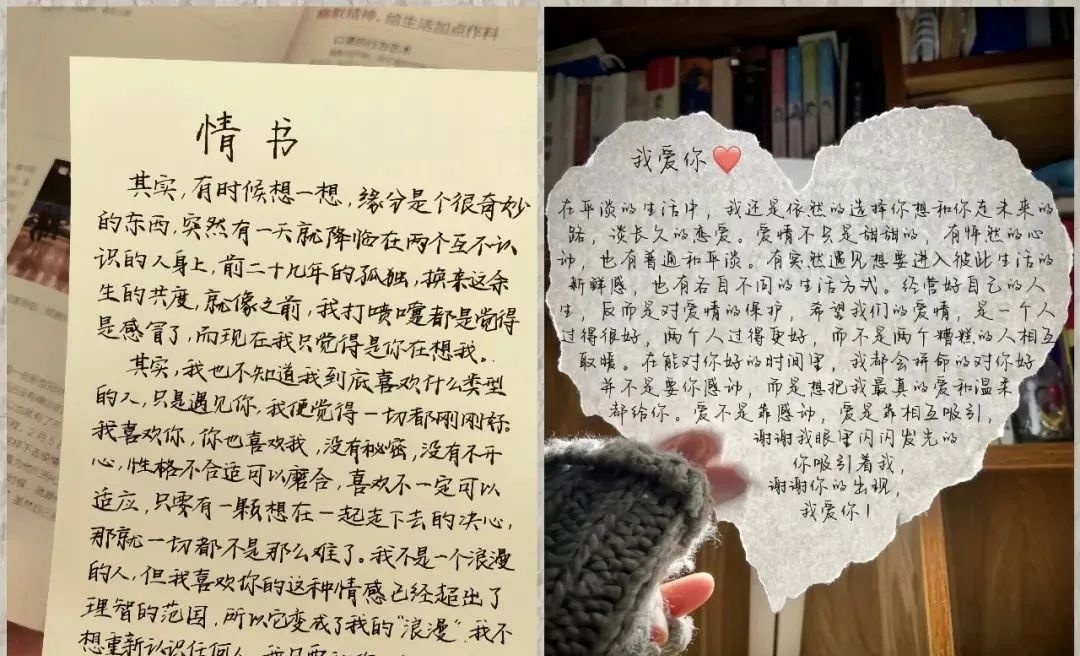 幽默精神，给生活加点作料
情书
其实，有时候想一想，缘分是个很奇妙
的东西，突然有一天就降临在两个互不认
识的人身上，前二十几年的孤独，换来这余
生的共度，就像之前，我打喷嚏都是觉得
是感冒了，而现在我只觉得是你在想我。
其实，我也不知道我到底喜欢什么类型
的人，只是遇见你，我便觉得一切都刚刚好。
我喜欢你，你也喜欢我，没有秘密，没有不开
心，性格不合适可以磨合，喜欢不一定可以
适应，只要有一颗想在一起走下去的决心，
那就一切都不是那么难了。我不是一个浪漫
的人，但我喜欢你的这种情感已经超出了
理智的范围，所以它变成了我的“浪漫”。我不
想重新认识任何人
我爱你❤️
在平淡的生活中，我还是依然的选择你想和你走未来的
路，谈长久的恋爱。爱情不只是甜甜的，有怦然的心
动，也有普通和平淡。有突然遇见想要进入彼此生活的
新鲜感，也有各自不同的生活方式。经营好自己的人
生，反而是对爱情的保护，希望我们的爱情，是一个人
过得很好，两个人过得更好，而不是两个糟糕的人相互
取暖。在能对你好的时间里，我都会拼命的对你好
并不是要你感动，而是想把我最真的爱和温柔
都给你。爱不是靠感动，爱是靠相互吸引，
谢谢我眼里闪闪发光的
你吸引着我，
谢谢你的出现，
我爱你！